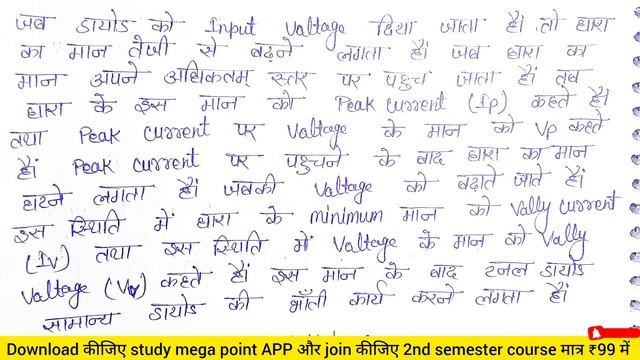 जब डायोड को Input Valtage दिया जाता हैं तो धारा
का मान तेजी से बढ़ने लगता हैं जब धारा का
मान अपने अधिकतम् स्तर पर पहुच जाता हैं तब
धारा के इस मान को Peak Current (Ip) कहते हैं
तथा Peak Current पर Valtage के मान को Vp कहते
हैं Peak Current पर पहुचने के बाद धारा का मान
घटने लगता हैं जबकी Valtage को बढ़ाते जाते हैं
इस स्थिति में धारा के minimum मान को Vally Current
(Iv) तथा इस स्थिति में Valtage के मान को Vally
Valtage (Vv) कहते हैं इस मान के बाद टनल डायोड
सामान्य डायोड की भाँती कार्य करने लगता हैं
Download कीजिए study mega point APP और join कीजिए 2nd semester course मात्र ₹99 में